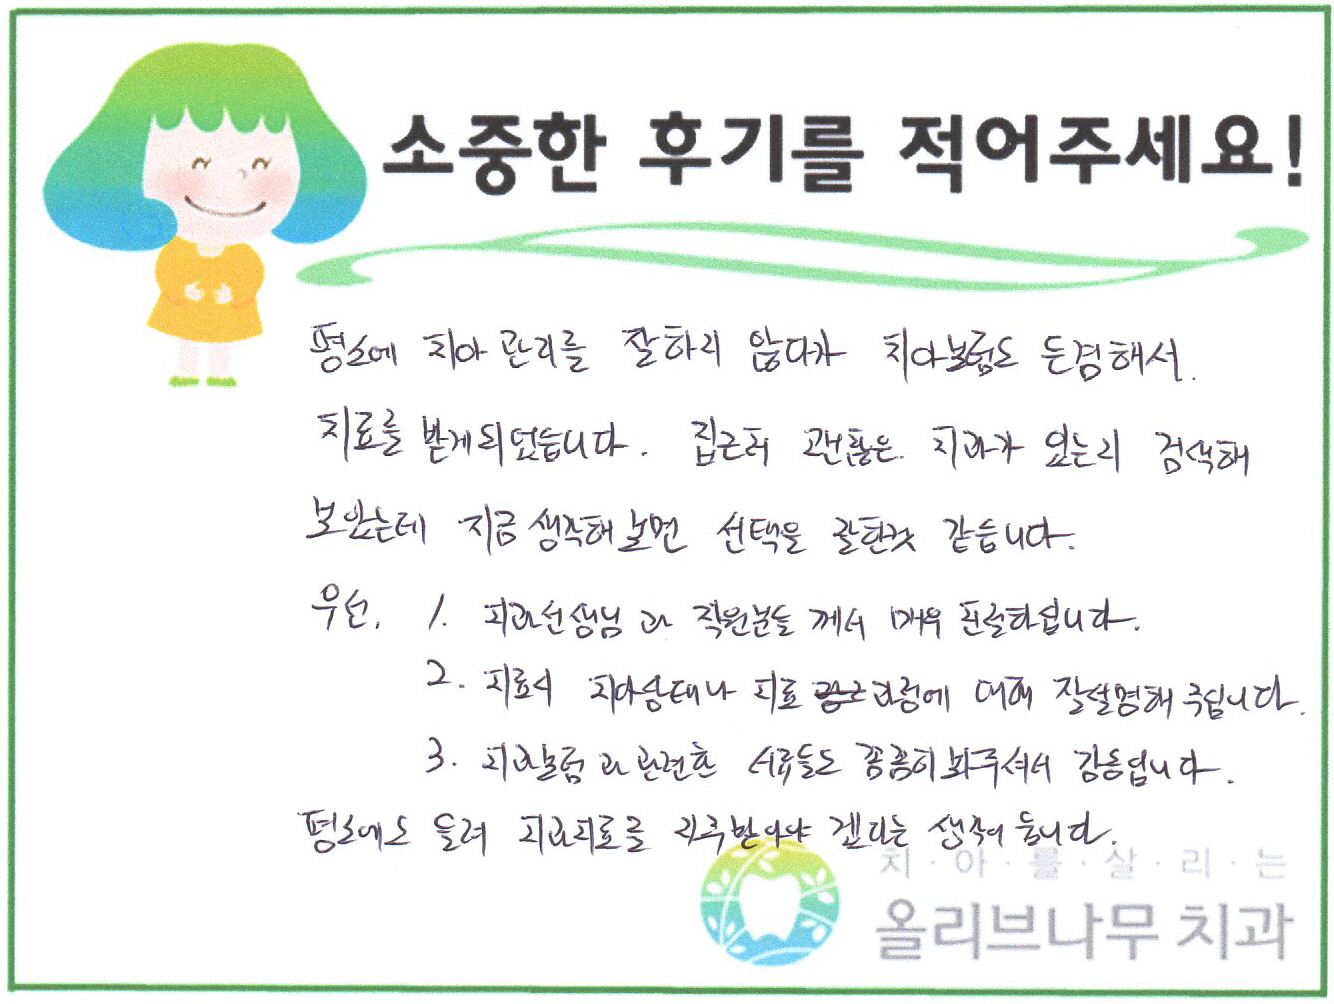 소중한 후기를 적어주세요!
평소에 치아 관리를 잘하지 않다가 치아보험도 든겸해서
치료를 받게되었습니다. 집근처 괜찮은 치과가 있는지 검색해
보았는데 지금 생각해보면 선택을 잘한것 같습니다.
우선, 1. 치과선생님과 직원분들께서 매우 친절하십니다.
2. 치료시 치아상태나 치료 과정에 대해 잘설명해 주십니다.
3. 치과보험과 관련한 서류들도 꼼꼼히 봐주셔서 감동입니다.
평소에도 들려 치과치료를 자주받아야 겠다는 생각이 듭니다.
치·아·를·살·리·는
올리브나무 치과